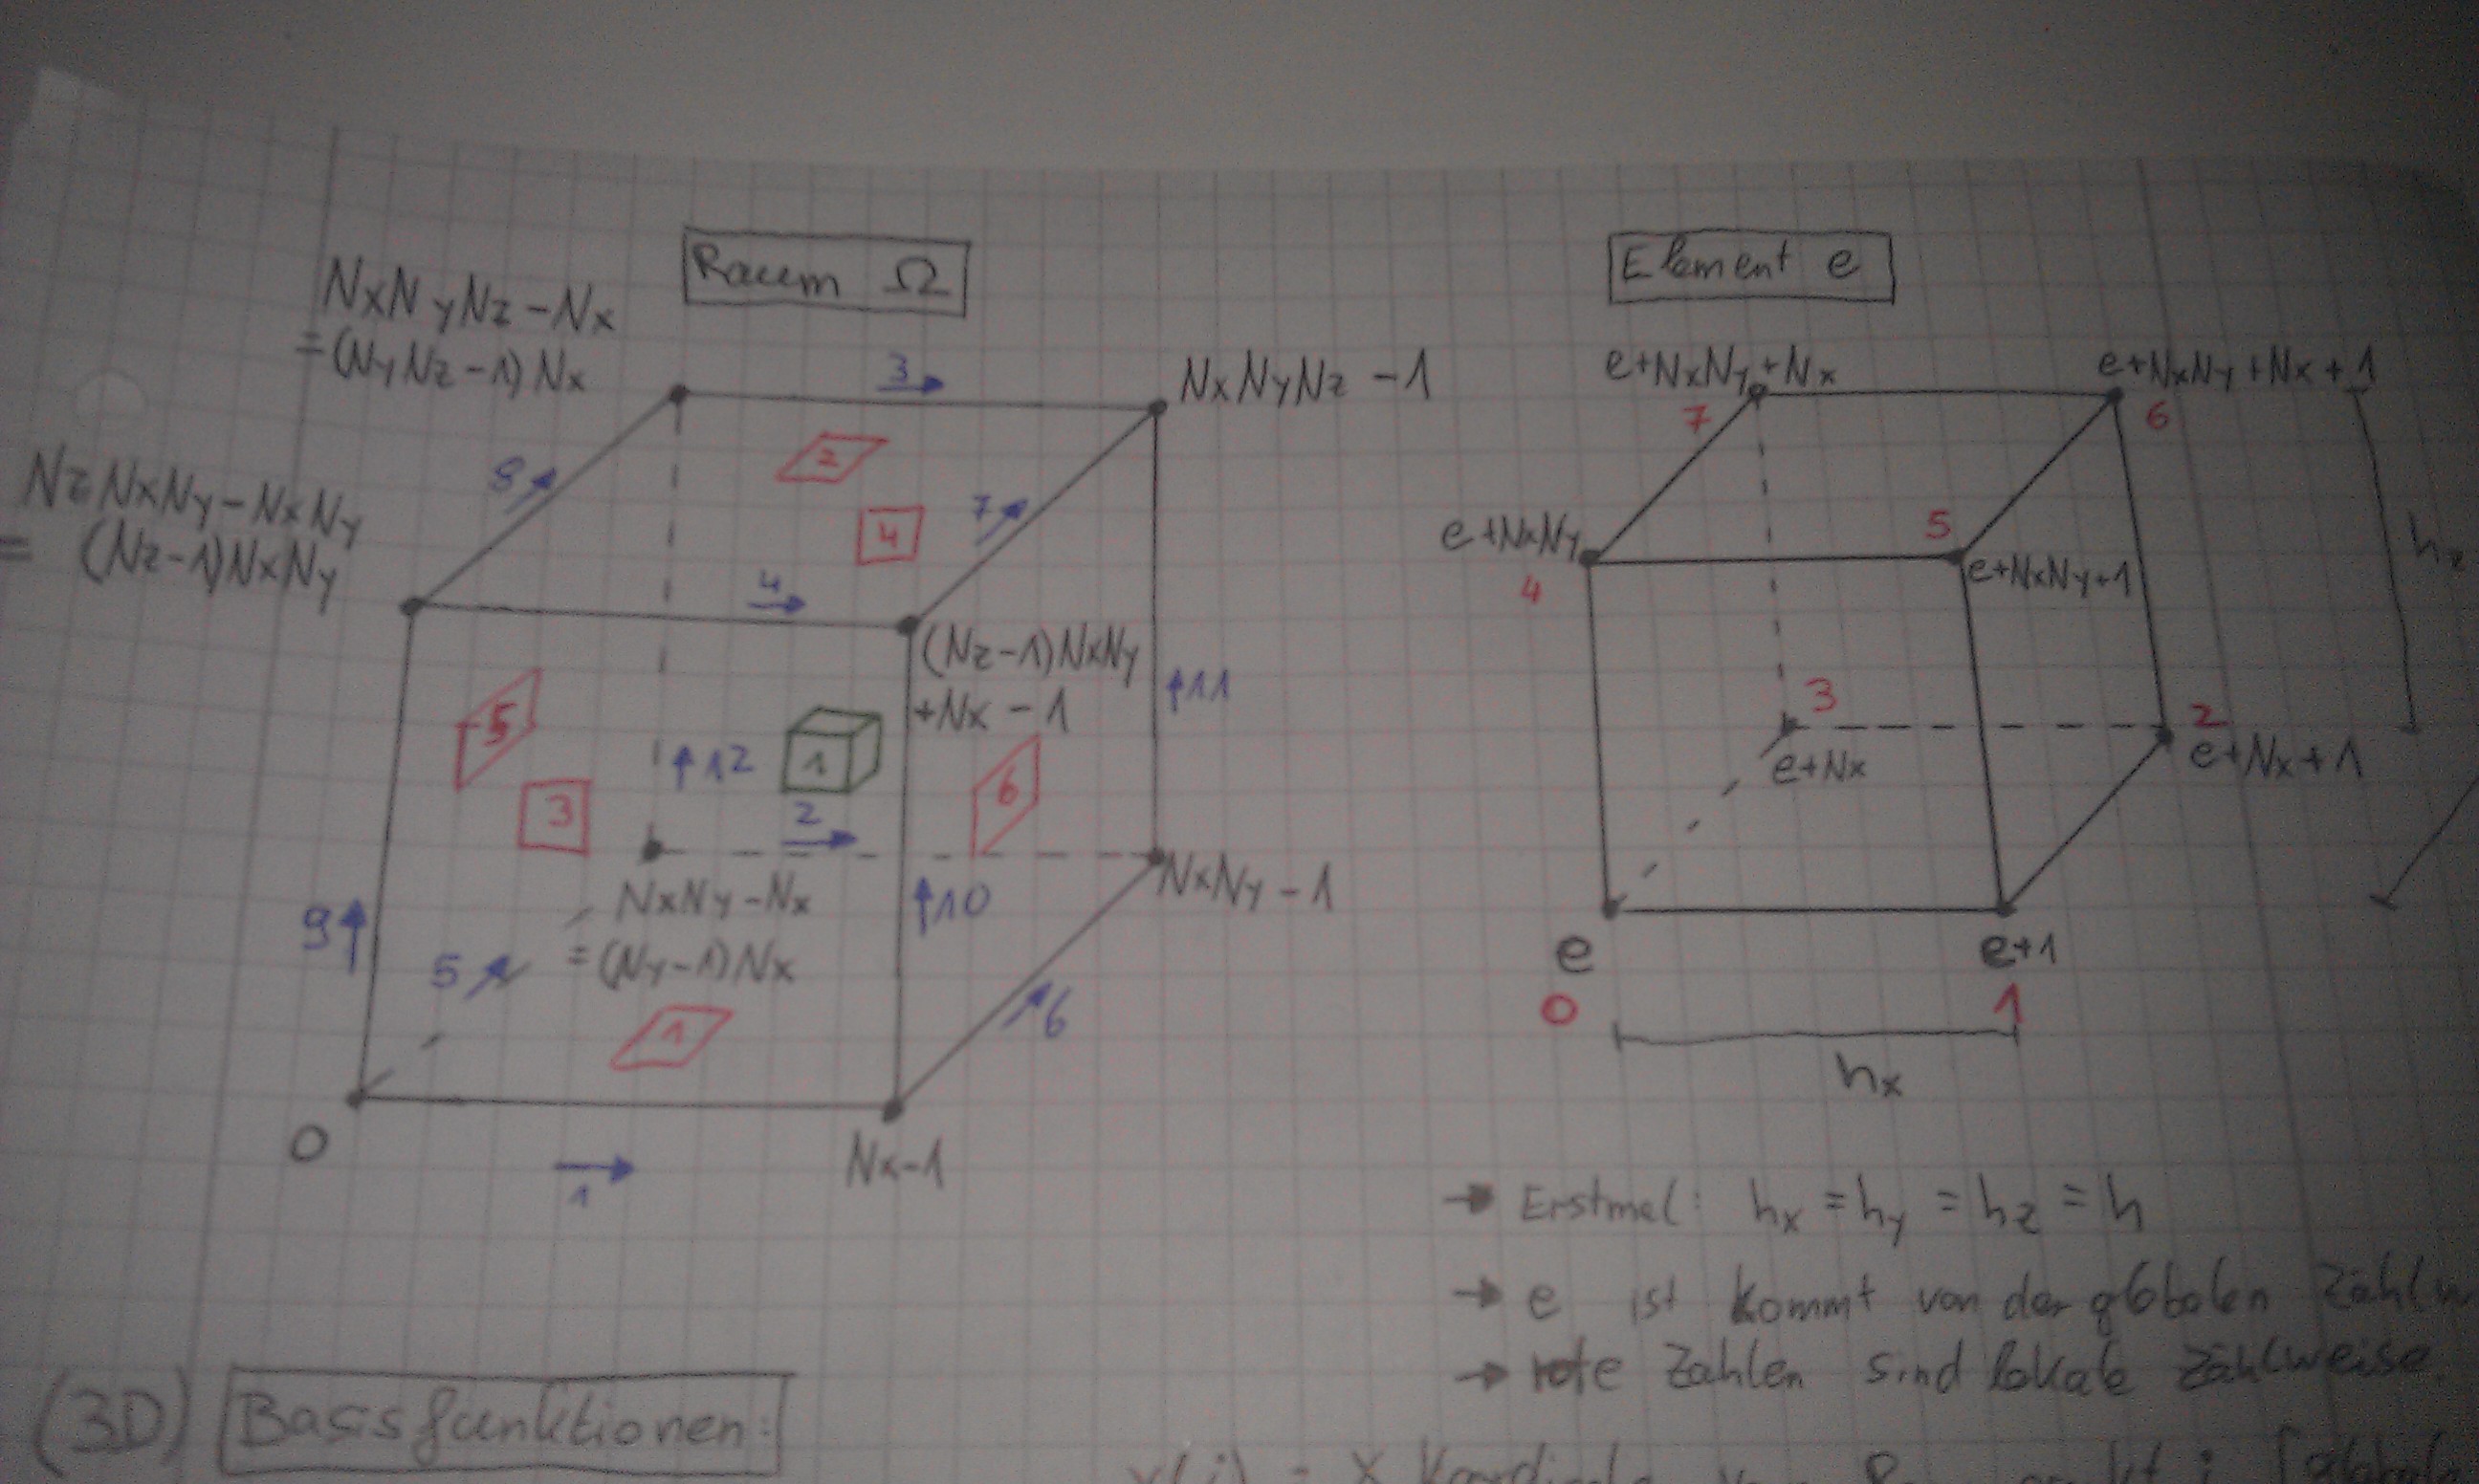 Raum Ω
NxNyNz - Nx
= (NyNz - 1) Nx
3
NxNyNz - 1
2
8
NzNxNy - NxNy
= (Nz-1)NxNy
7
4
4
(Nz-1)NxNy
+Nx - 1
5
11
12
1
6
3
2
NxNy - Nx
= (Ny-1) Nx
NxNy - 1
9
10
5
6
1
0
Nx-1
1
Element e
e+NxNy+Nx
e+NxNy+Nx+1
7
6
e+NxNy
5
4
e+NxNy+1
3
2
e+Nx
e+Nx+1
e
e+1
0
1
hx
→ Erstmal: hx = hy = hz = h
→ e ist kommt von der globalen
→ rote Zahlen sind lokale Zählweise.
(3D) Basisfunktionen: